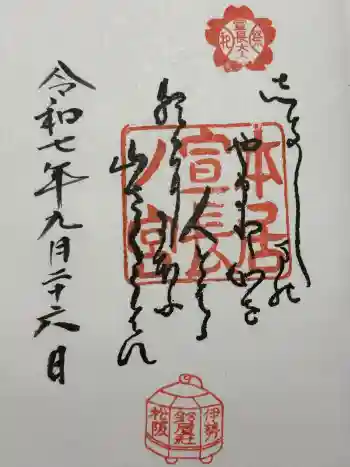 宣長大人
しきしまの
やまとこゝろを
人とはゝ
山さくらはな
本居
宣長
ノ宮
令和七年九月二十六日
伊勢
鈴屋社
松阪